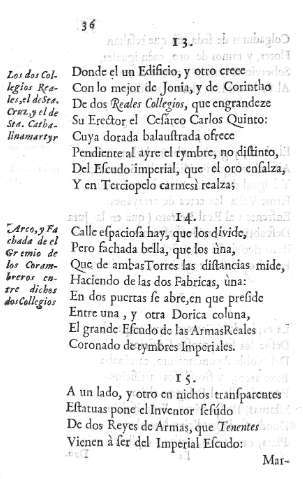 36
13.
Los dos Col-
legios Rea-
les, el de Sta.
Cruz, y el de
Sta. Catha-
lina martyr
Donde el un Edificio, y otro crece
Con lo mejor de Jonia, y de Corintho
De dos Reales Collegios, que engrandeze
Su Erector el Cesareo Carlos Quinto:
Cuya dorada balaustrada ofrece
Pendiente al ayre el tymbre, no distinto,
Del Escudo imperial, que el oro ensalza,
Y en Terciopelo carmesì realza;
14.
Arco, y Fa
chada de el
Gremio de
los Coram-
breros en-
tre dichos
dos Collegios
Calle espaciosa hay, que los divide,
Pero fachada bella, que los ùna,
Que de ambas Torres las distancias mide,
Haciendo de las dos Fabricas, ùna:
En dos puertas se abre, en que preside
Entre una, y otra Dorica coluna,
El grande Escudo de las Armas Reales
Coronado de tymbres Imperiales.
15.
A un lado, y otro en nichos transparentes
Estatuas pone el Inventor sesùdo
De dos Reyes de Armas, que Tenentes
Vienen à ser del Imperial Escudo:
Mar-